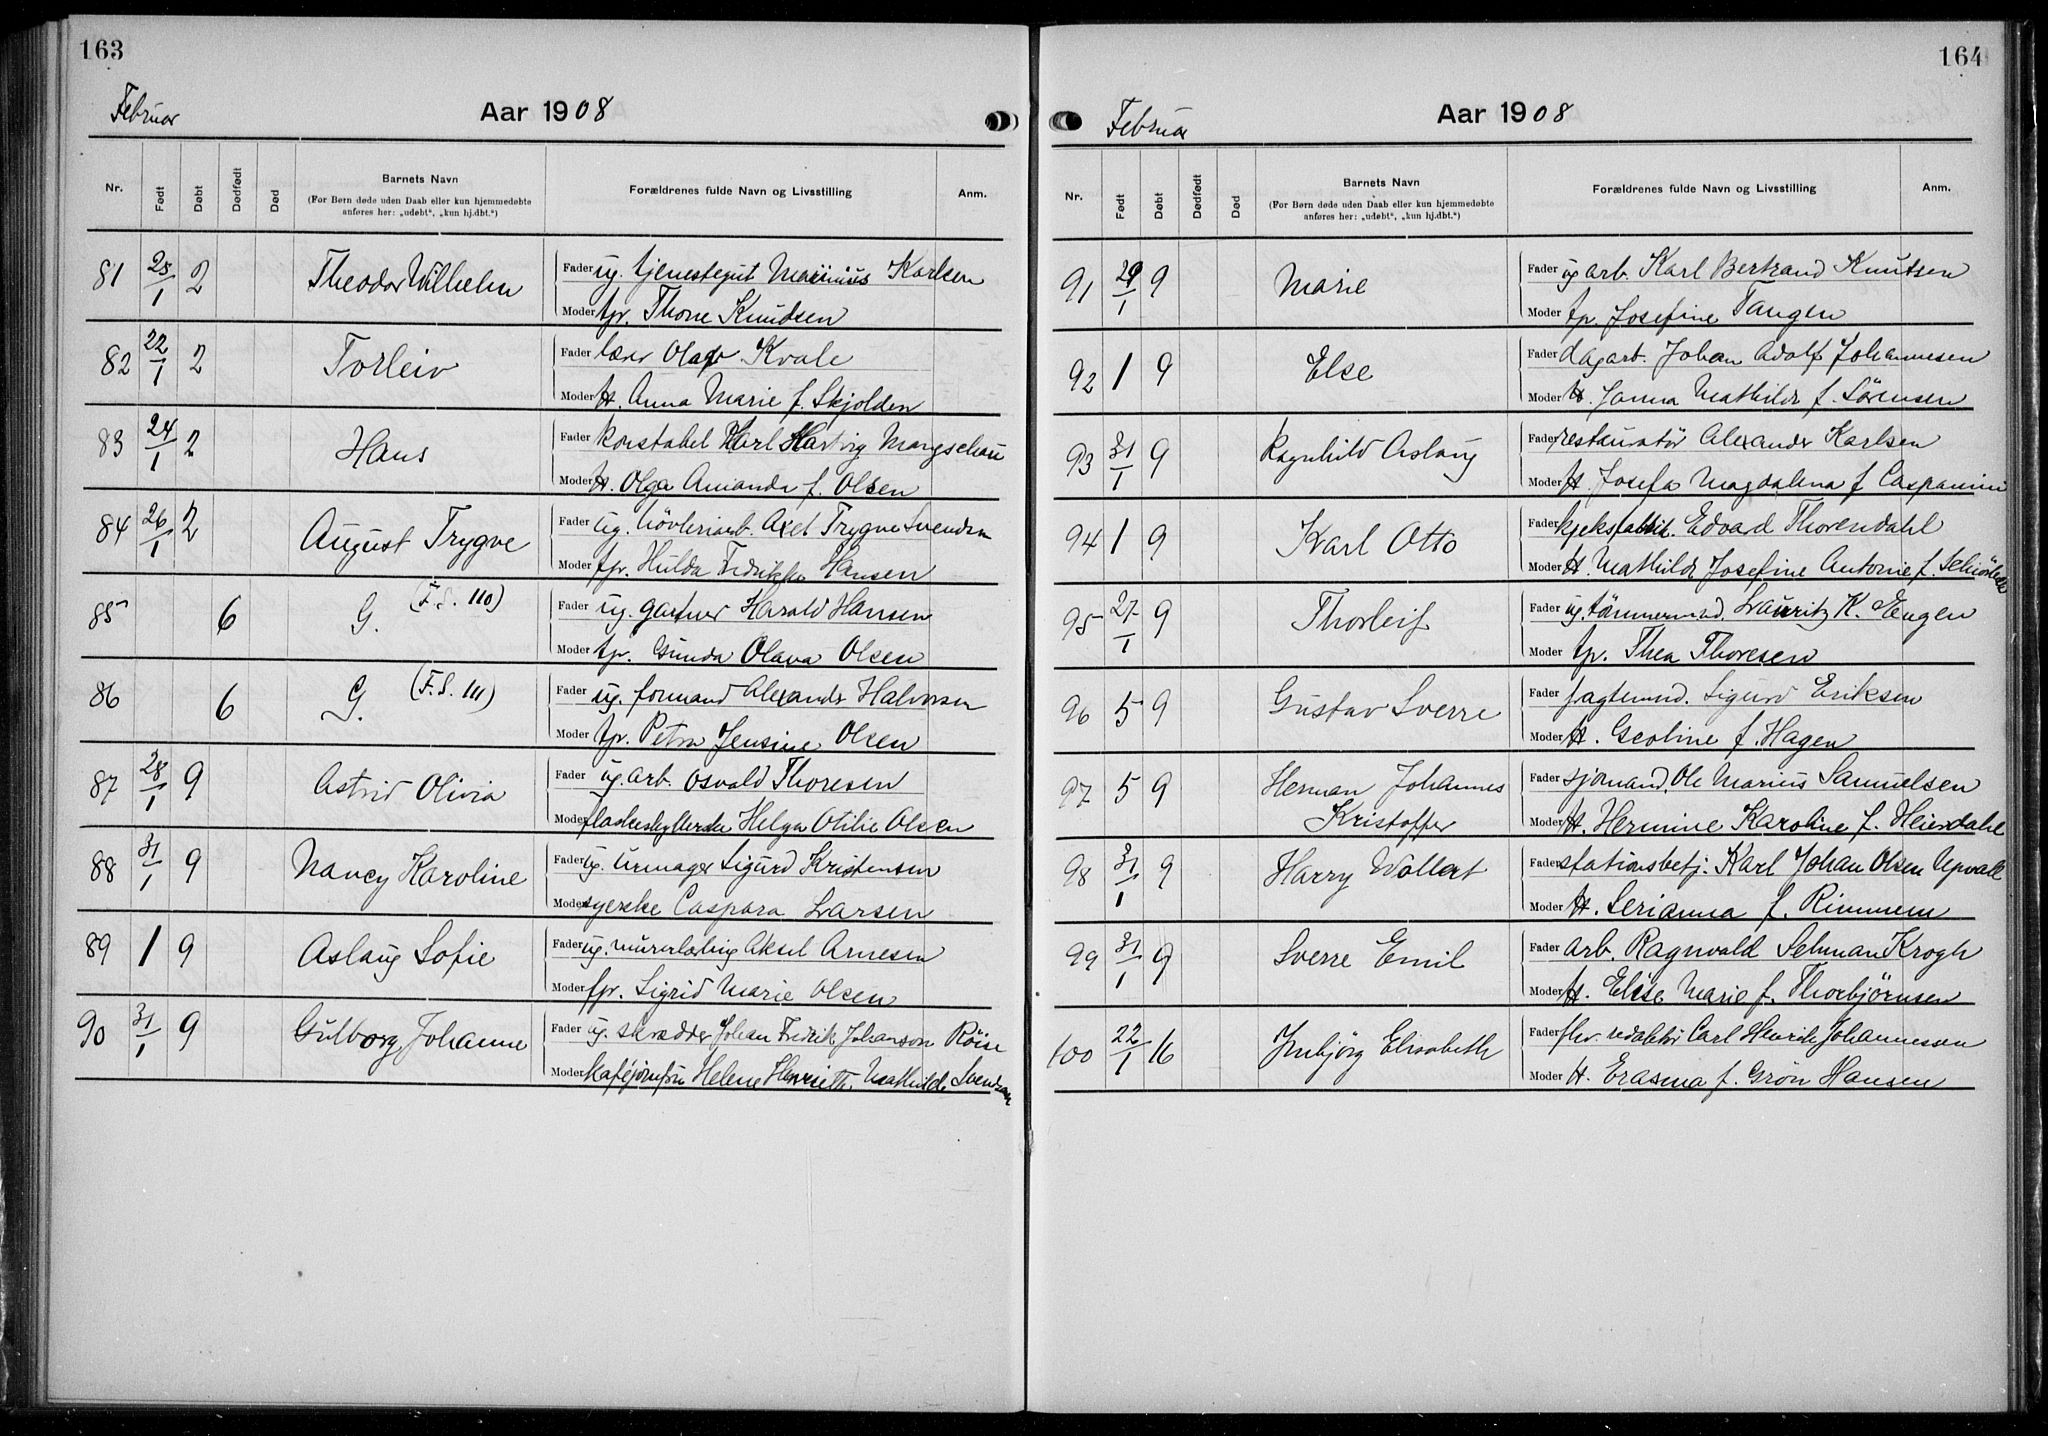 163
Februar
Aar 1908
Nr.
Født
Døbt
Dødfødt
Død
Barnets Navn
(For Børn døde uden Daab eller kun hjemmedøbte
anføres her: „udøbt“, „kun hj.dbt.“)
Forældrenes fulde Navn og Livsstilling
Anm.
81 25/1 2 Theodor Wilhelm
Fader ug. tjenestegut Marinius Karlsen
Moder tpr. Thone Knudsen
82 22/1 2 Torleiv
Fader Olaf Kvale
Moder H. Anna Marie f. Skjolden
83 24/1 2 Hans
Fader konstabel Karl Hartvig Mangschau
Moder H. Olga Amanda f. Olsen
84 26/1 2 August Trygve
Fader ug. høvleriarb. Axel Trygve Svendsen
Moder fpr. Hulda Fredrikke Hansen
85 6 G. (F.S. 110)
Fader ug. gartner Harald Hansen
Moder tpr. Gunda Olava Olsen
86 6 G. (F.S. 111)
Fader ug. formand Alexander Halvorsen
Moder tpr. Petra Jensine Olsen
87 28/1 9 Astrid Olivia
Fader ug. arb. Osvald Thoresen
Moder flaskeskyllerske Helga Otilie Olsen
88 31/1 9 Nancy Karoline
Fader ug. urmager Sigurd Kristensen
Moder syerske Caspara Larsen
89 1 9 Aslaug Sofie
Fader ug. murerlærling Aksel Arnesen
Moder fpr. Sigrid Marie Olsen
90 31/1 9 Gulborg Johanne
Fader ug. skrædder Johan Fredrik Johanson Röise
Moder kaféjomfru Helene Henriette Mathilde Svendsen
164
Februar
Aar 1908
Nr.
Født
Døbt
Dødfødt
Død
Barnets Navn
(For Børn døde uden Daab eller kun hjemmedøbte
anføres her: „udøbt“, „kun hj.dbt.“)
Forældrenes fulde Navn og Livsstilling
Anm.
91 29/1 9 Marie
Fader ug arb. Karl Bertrand Knutsen
Moder tp. Josefine Tangen
92 1 9 Else
Fader dagarb. Johan Adolf Johannesen
Moder H. Janna Mathilde f. Sörensen
93 31/1 9 Ragnhild Aslaug
Fader restauratör Alexander Karlsen
Moder H. Josefa Magdalena f
94 1 9 Karl Otto
Fader kjeksfabrik. Edvard Thorendahl
Moder H. Mathilde Josefine Antonie f.
95 27/1 9 Thorleif
Fader ug. tömmermd. Lauritz K. Engen
Moder tpr. Thea Thoresen
96 5 9 Gustav Sverre
Fader fragtemnd. Sigurd Eriksen
Moder H. Geoline f. Hagen
97 5 9 Herman Johannes
Kristoffer
Fader sjømand. Ole Marius Samuelsen
Moder H. Hermine Karoline f. Heierdahl
98 31/1 9 Harry Wollert
Fader stationsbetj. Karl Johan Olsen Upvall
Moder H. Serianna f. Rimmem
99 31/1 9 Sverre Emil
Fader arb. Ragnvald Selman Krogh
Moder H. Elise Marie f. Thorbjörnsen
100 22/1 16 Inbjörg Elisabeth
Fader fhv. redaktör Carl Henrik Johannessen
Moder H. Erasma f. Grön Hansen